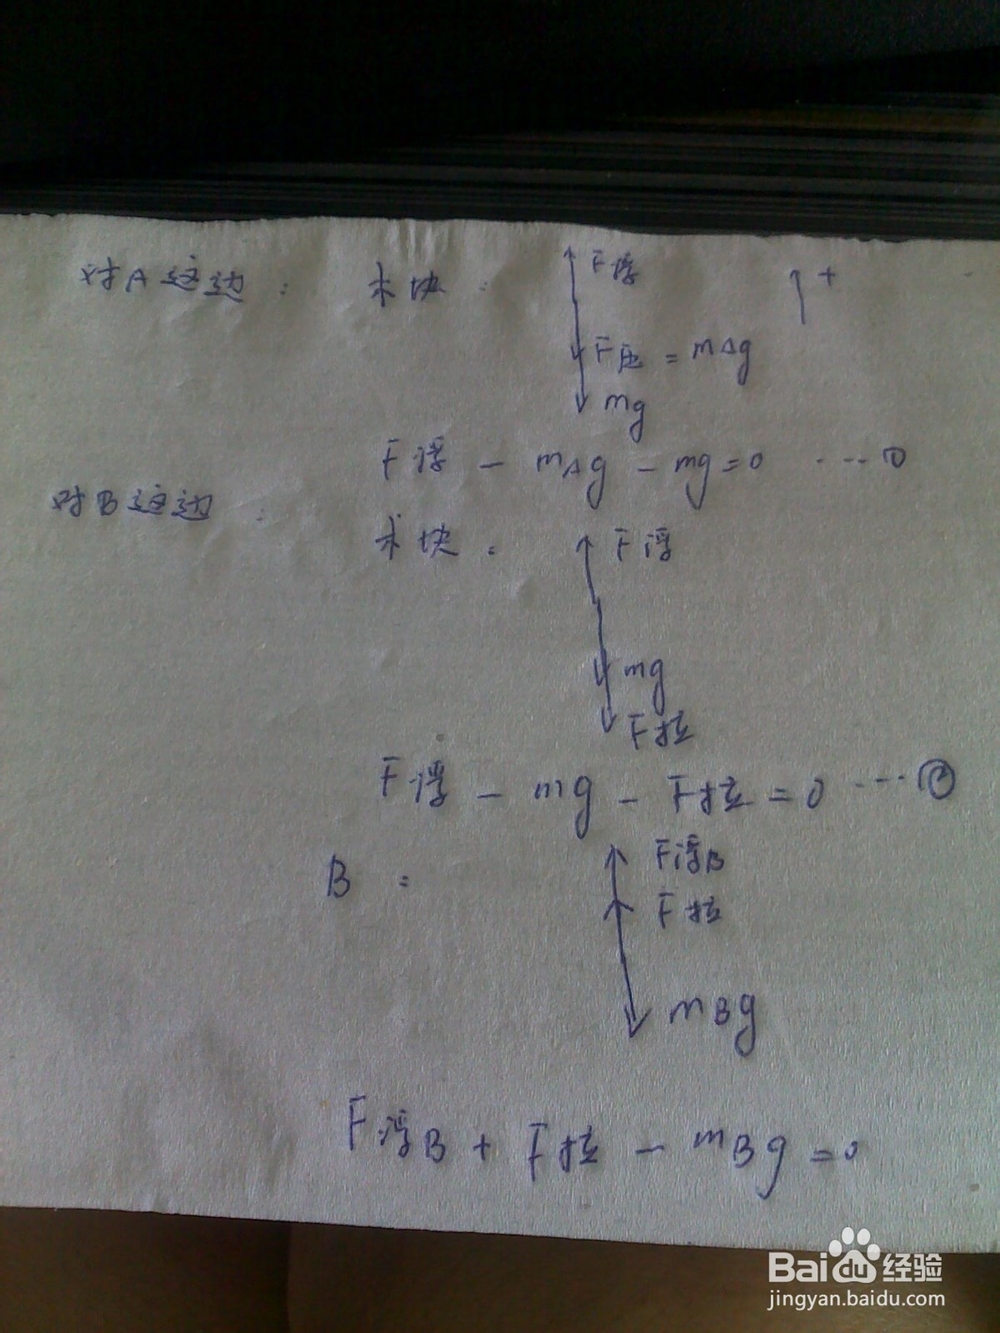 对A这边: 木块: F浮 ↑+
F压 = mAg
mg
F浮 - mAg - mg = 0 ……①
对B这边:
木块: F浮
mg
F拉
F浮 - mg - F拉 = 0 ……②
B: F浮B
F拉
mBg
F浮B + F拉 - mBg = 0
Baidu经验
jingyan.baidu.com